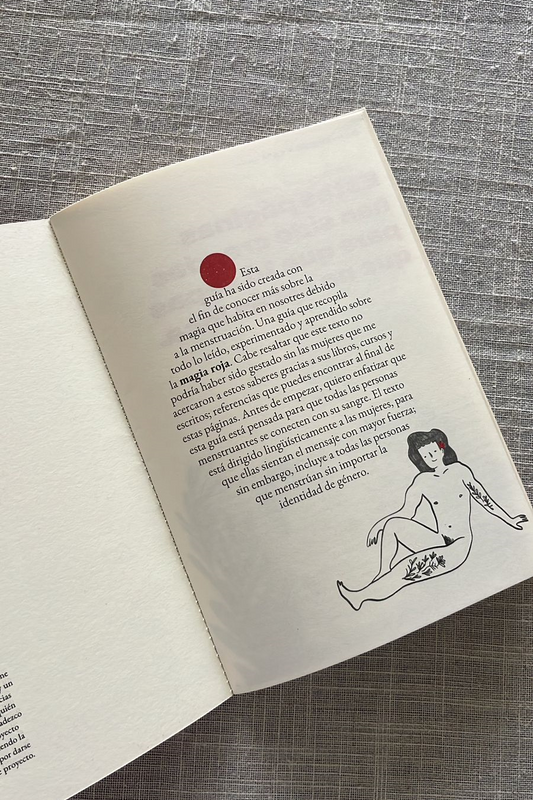 ne
y un
cias
quién
adezco
oyecto
endo la
por darse
e proyecto.
Esta
guía ha sido creada con
el fin de conocer más sobre la
magia que habita en nosotres debido
a la menstruación. Una guía que recopila
todo lo leído, experimentado y aprendido sobre
la magia roja. Cabe resaltar que este texto no
podría haber sido gestado sin las mujeres que me
acercaron a estos saberes gracias a sus libros, cursos y
escritos; referencias que puedes encontrar al final de
estas páginas. Antes de empezar, quiero enfatizar que
esta guía está pensada para que todas las personas
menstruantes se conecten con su sangre. El texto
está dirigido lingüísticamente a las mujeres, para
que ellas sientan el mensaje con mayor fuerza;
sin embargo, incluye a todas las personas
que menstrúan sin importar la
identidad de género.